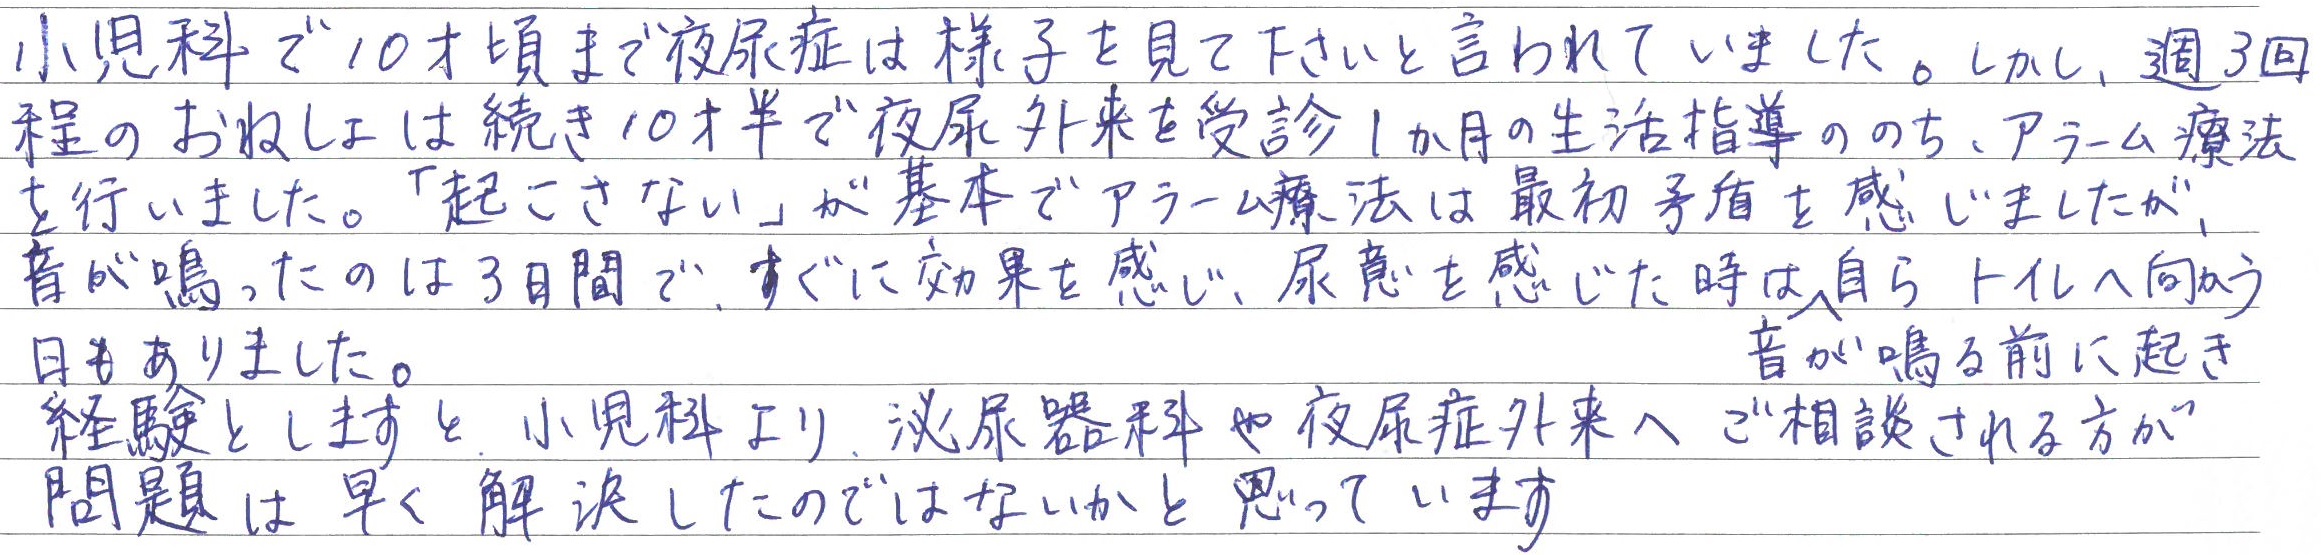 小児科で10才頃まで夜尿症は様子を見て下さいと言われていました。しかし、週3回
程のおねしょは続き10才半で夜尿外来を受診1か月の生活指導ののち、アラーム療法
を行いました。「起こさない」が基本でアラーム療法は最初矛盾を感じましたが、
音が鳴ったのは3日間で、すぐに効果を感じ、尿意を感じた時は自らトイレへ向かう
音が鳴る前に起き
日もありました。
経験としますと、小児科より、泌尿器科や夜尿症外来へご相談される方が
問題は早く解決したのではないかと思っています